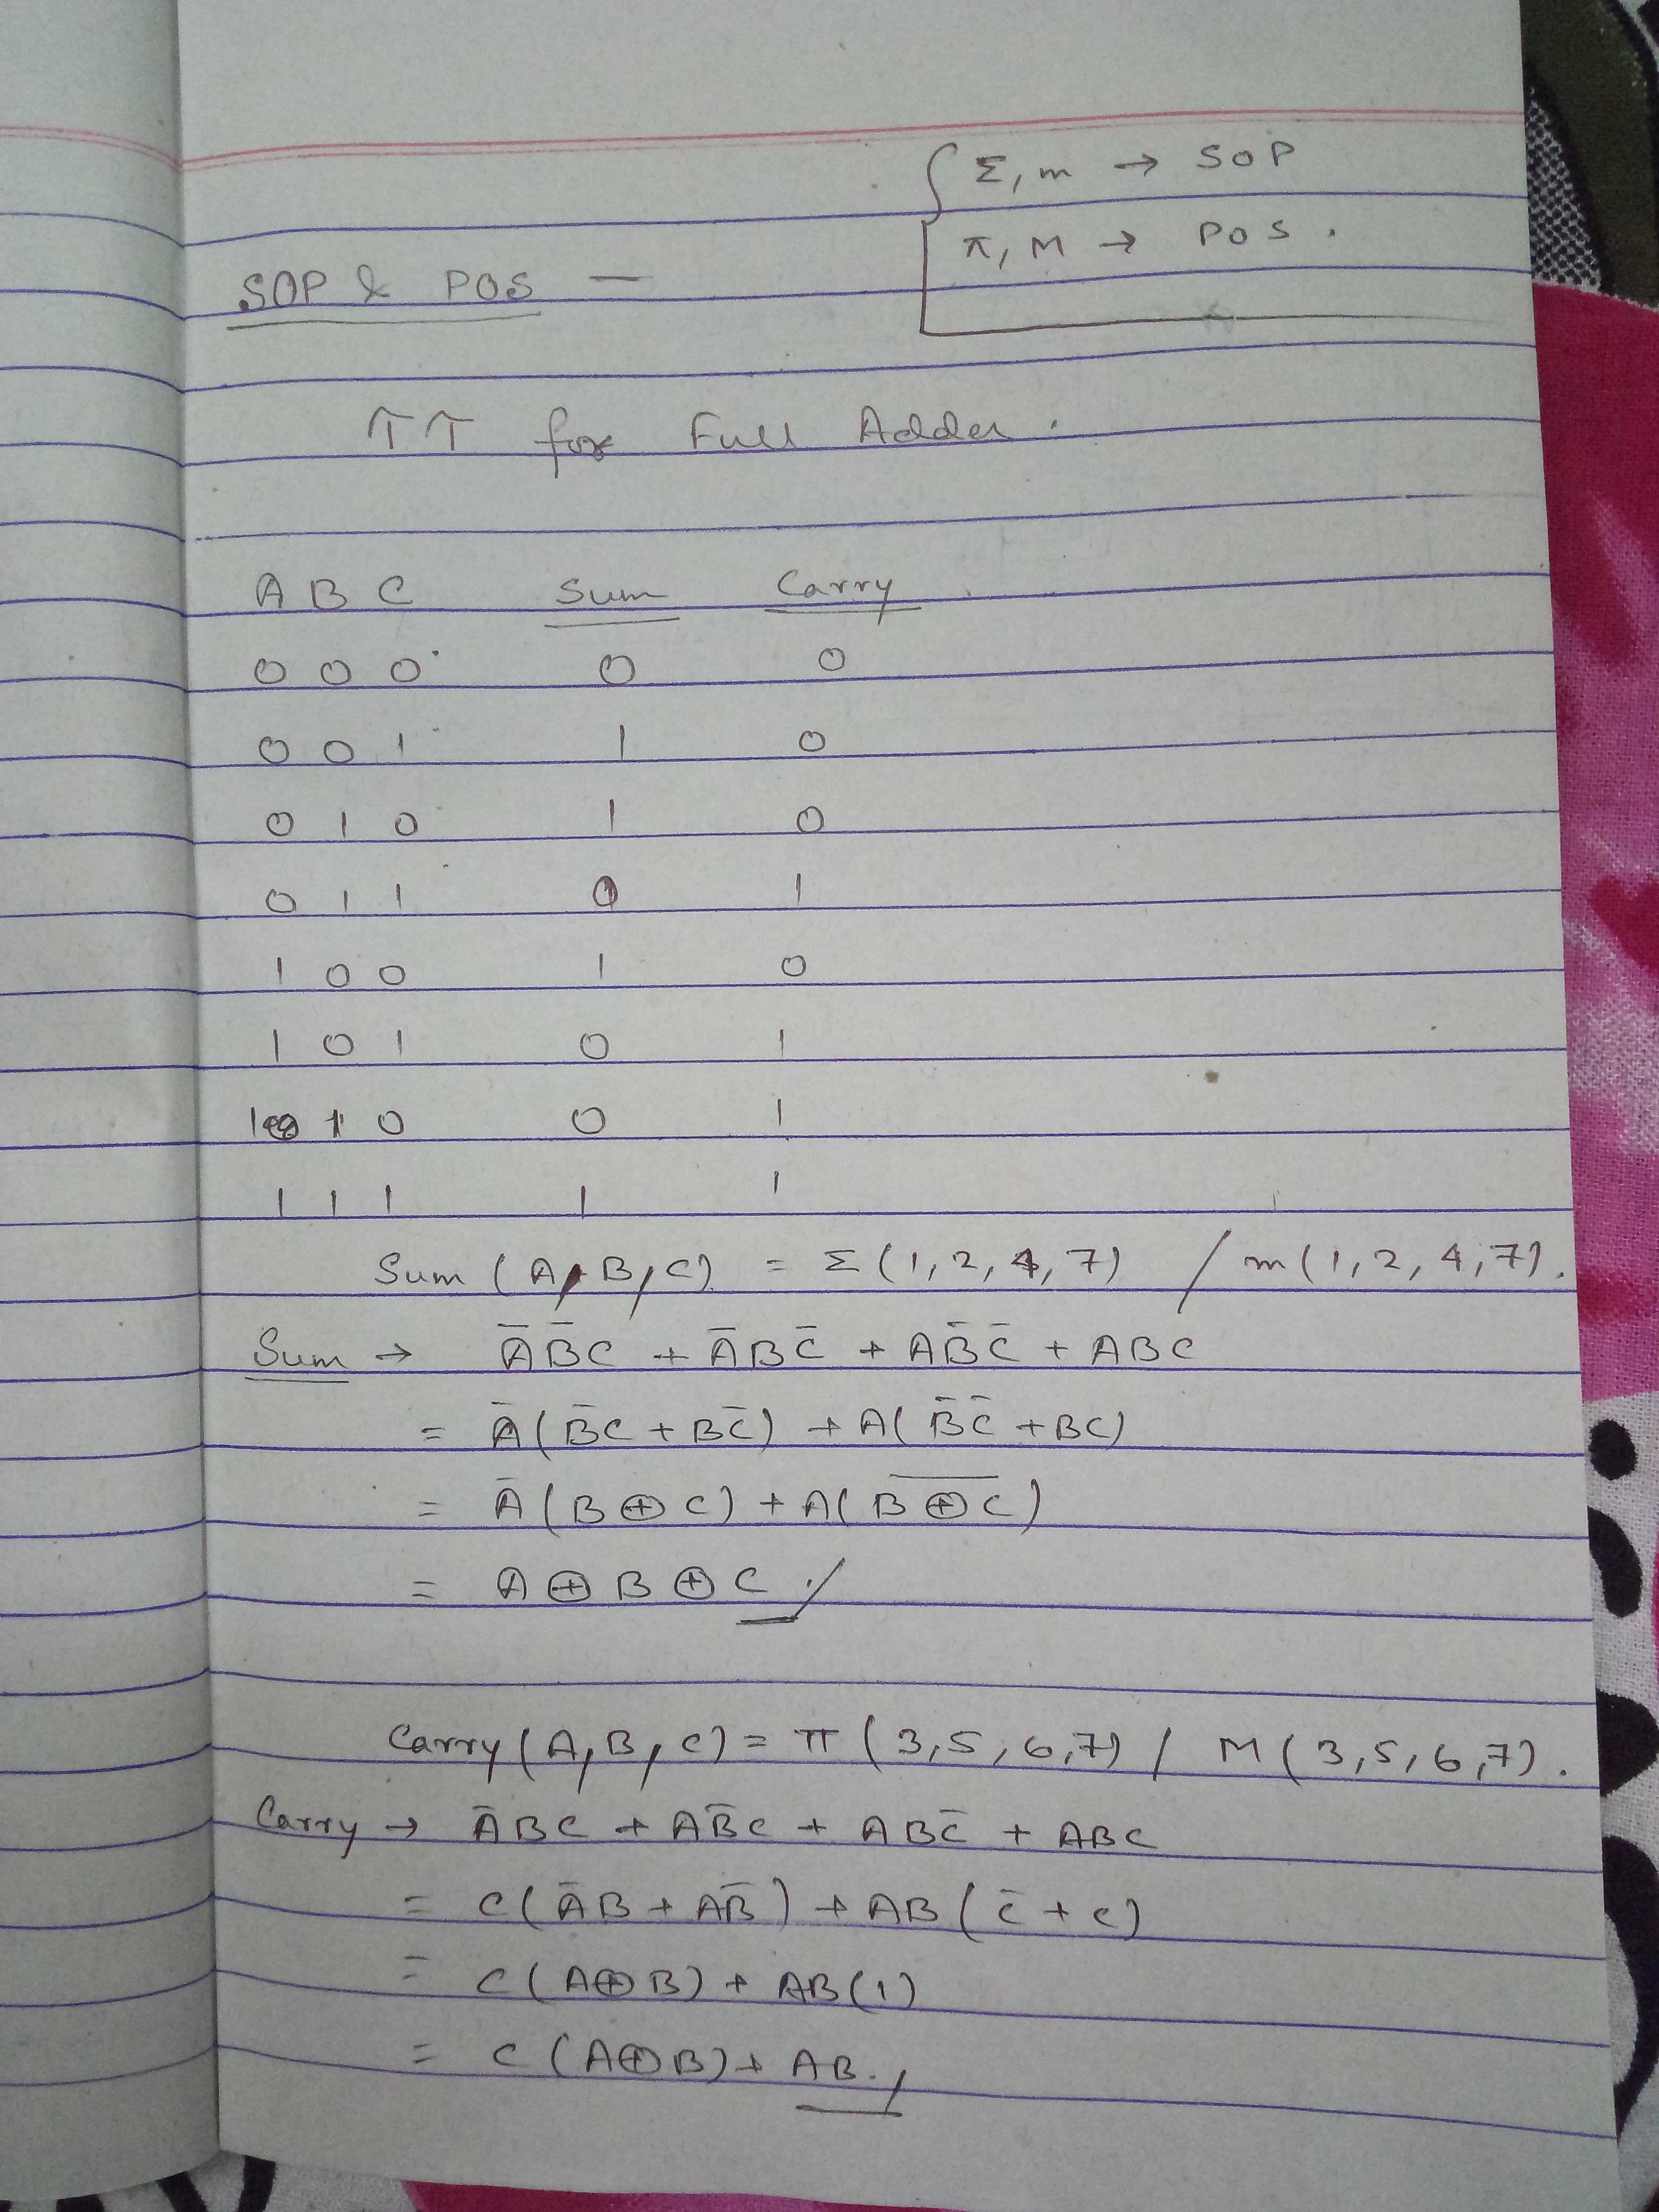 Σ, m → SOP
π, M → POS.
SOP & POS —
TT for Full Adder.
A B C Sum Carry
0 0 0 0 0
0 0 1 1 0
0 1 0 1 0
0 1 1 0 1
1 0 0 1 0
1 0 1 0 1
1 1 0 0 1
1 1 1 1 1
Sum (A, B, C) = Σ (1, 2, 4, 7) / m (1, 2, 4, 7).
Sum → A̅B̅C + A̅BC̅ + AB̅C̅ + ABC
= A̅(B̅C + BC̅) + A(B̅C̅ + BC)
= A̅(B ⊕ C) + A(B̅ ̅⊕̅ ̅C̅)
= A ⊕ B ⊕ C.
Carry (A, B, C) = π (3, 5, 6, 7) / M (3, 5, 6, 7).
Carry → A̅BC + AB̅C + ABC̅ + ABC
= C(A̅B + AB̅) + AB(C̅ + C)
= C(A⊕B) + AB(1)
= C(A⊕B) + AB.